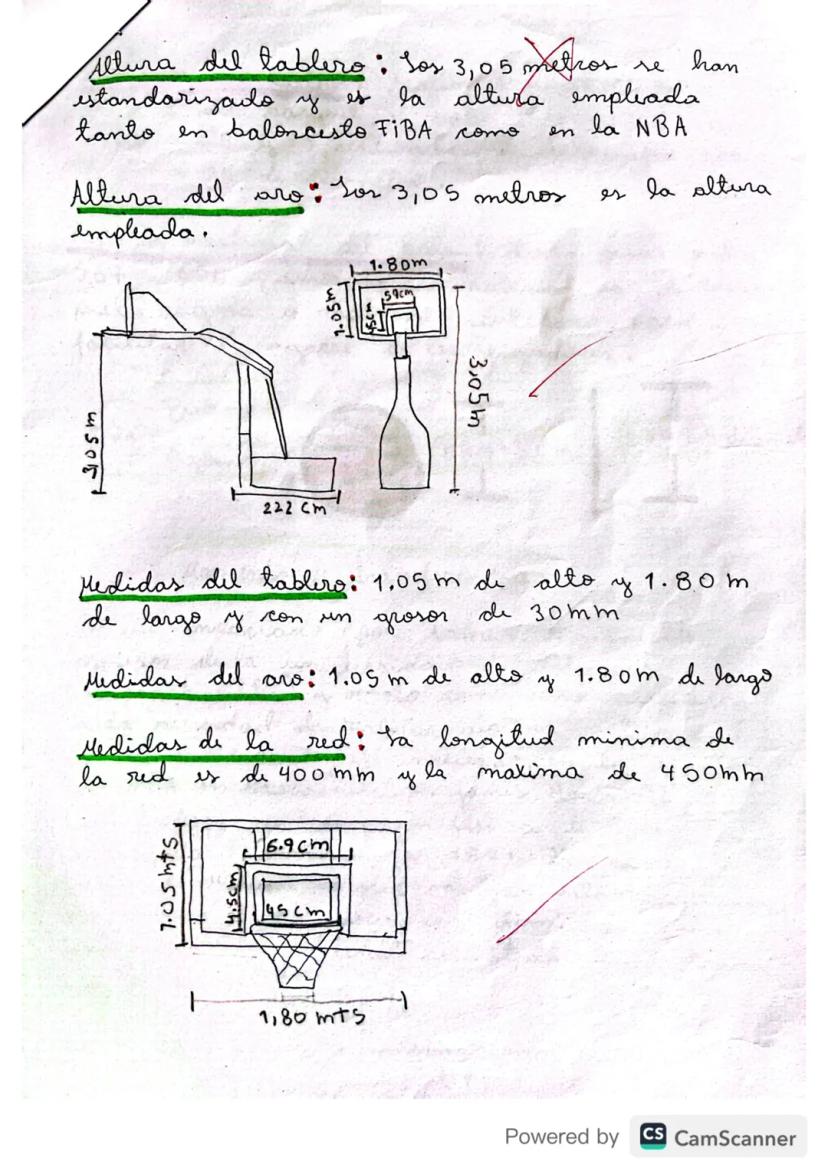 Altura del tablero: Los 3,05 metros se han
estandarizado y es la altura empleada
tanto en baloncesto FiBA como en la NBA
Altura del aro: Los 3,05 metros es la altura
empleada.
1.80m
1.05m
59cm
45cm
3.05m
3,05m
222 cm
Medidas del tablero: 1,05m de alto y 1.80m
de largo y con un grosor de 30mm
Medidas del aro: 1.05m de alto y 1.80m de largo
Medidas de la red: La longitud minima de
la red es de 400mm y la maxima de 450mm
6.9cm
1.05 mts
4.5cm
45cm
1,80 mts
Powered by CS CamScanner